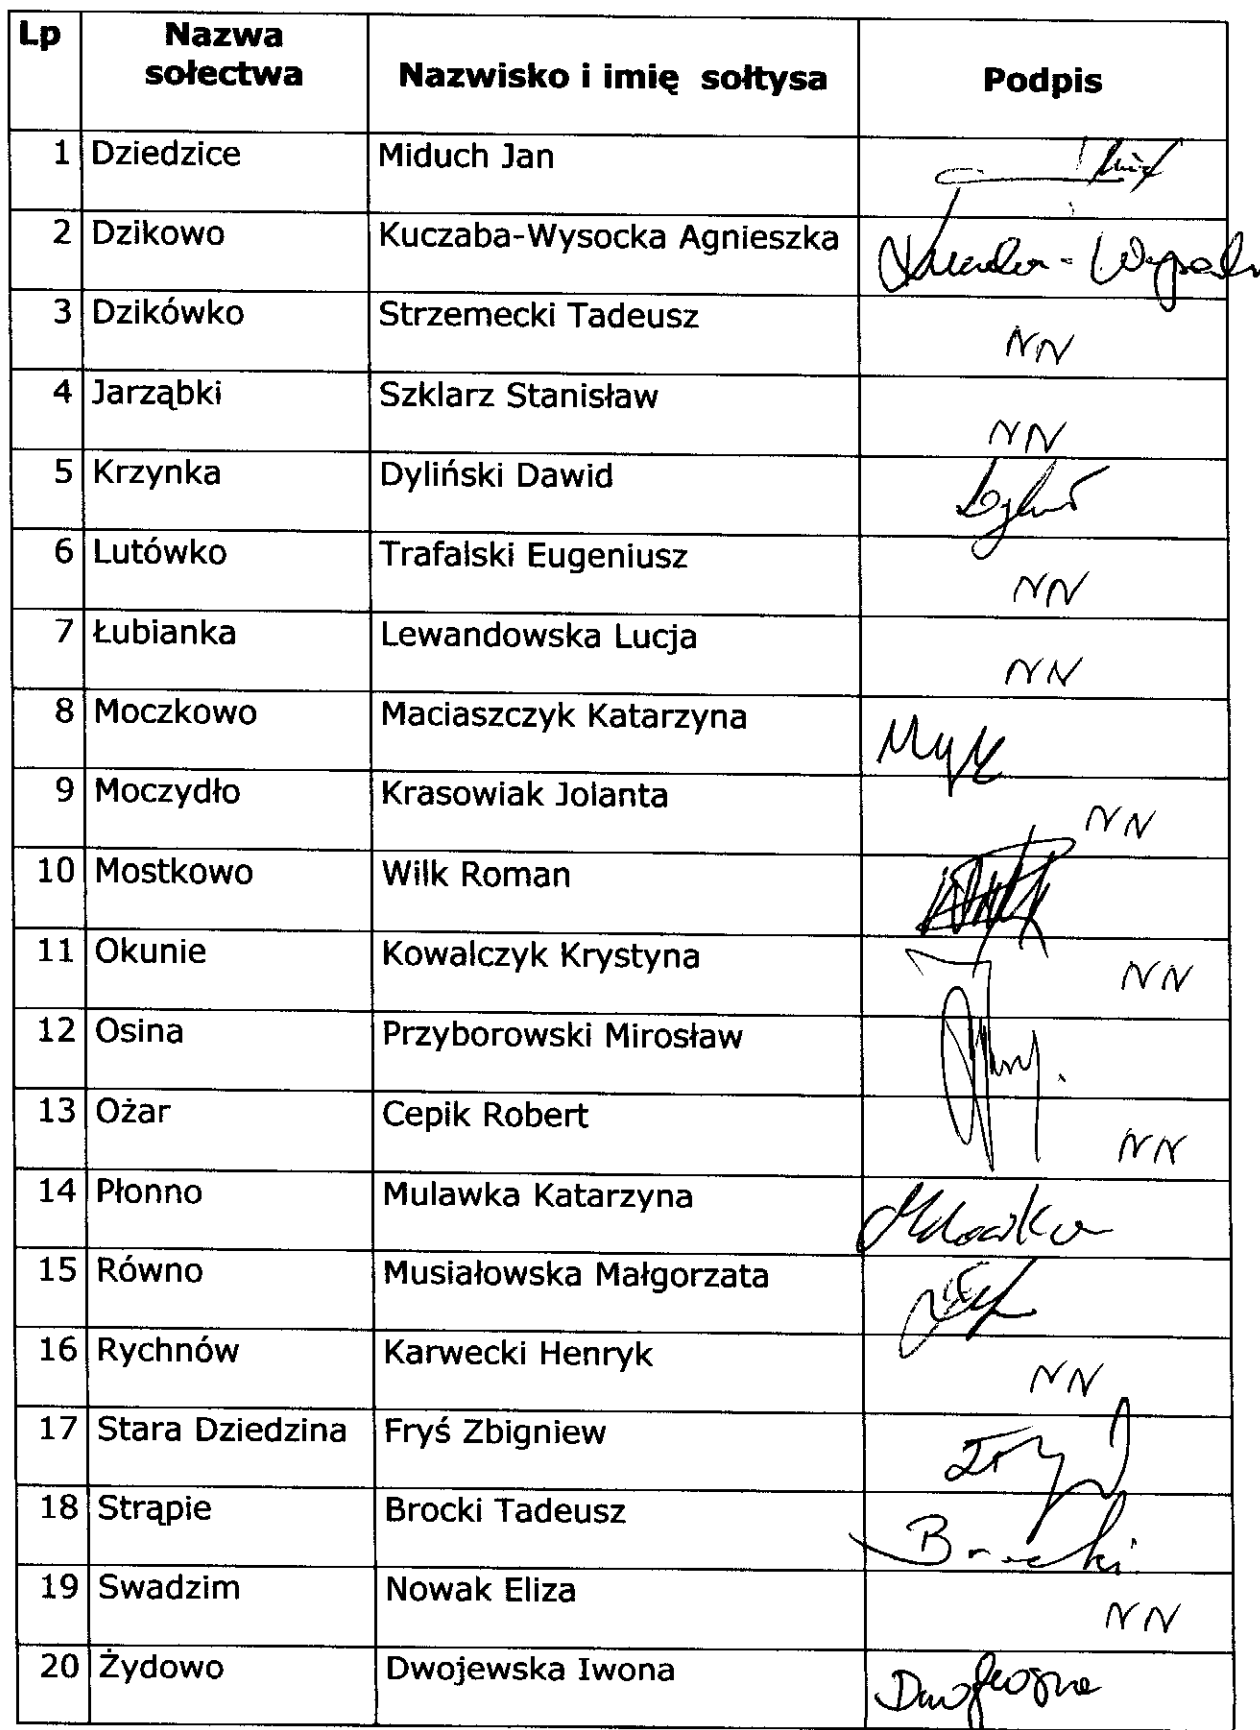 Lp Nazwa sołectwa Nazwisko i imię sołtysa Podpis
1 Dziedzice Miduch Jan
2 Dzikowo Kuczaba-Wysocka Agnieszka
3 Dzikówko Strzemecki Tadeusz NN
4 Jarząbki Szklarz Stanisław NN
5 Krzynka Dyliński Dawid
6 Lutówko Trafalski Eugeniusz NN
7 Łubianka Lewandowska Lucja NN
8 Moczkowo Maciaszczyk Katarzyna
9 Moczydło Krasowiak Jolanta NN
10 Mostkowo Wilk Roman
11 Okunie Kowalczyk Krystyna NN
12 Osina Przyborowski Mirosław
13 Ożar Cepik Robert NN
14 Płonno Mulawka Katarzyna
15 Równo Musiałowska Małgorzata
16 Rychnów Karwecki Henryk NN
17 Stara Dziedzina Fryś Zbigniew
18 Strąpie Brocki Tadeusz Brocki
19 Swadzim Nowak Eliza NN
20 Żydowo Dwojewska Iwona